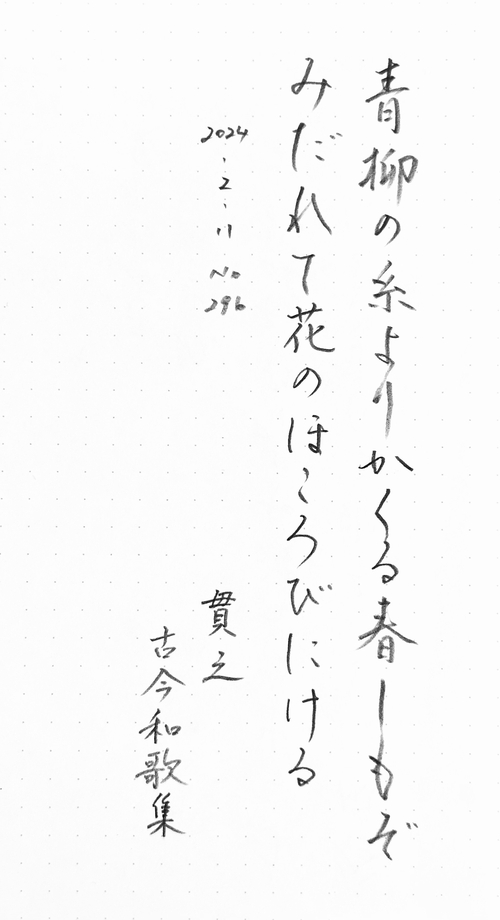 青柳の糸よりかくる春しもぞ
みだれて花のほころびにける
2024.2.11 No 296
貫之
古今和歌集